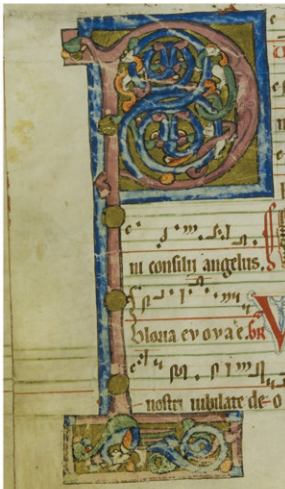 P
ni consilii angelus.
Gloria evovae. Gr
nostri iubilate deo